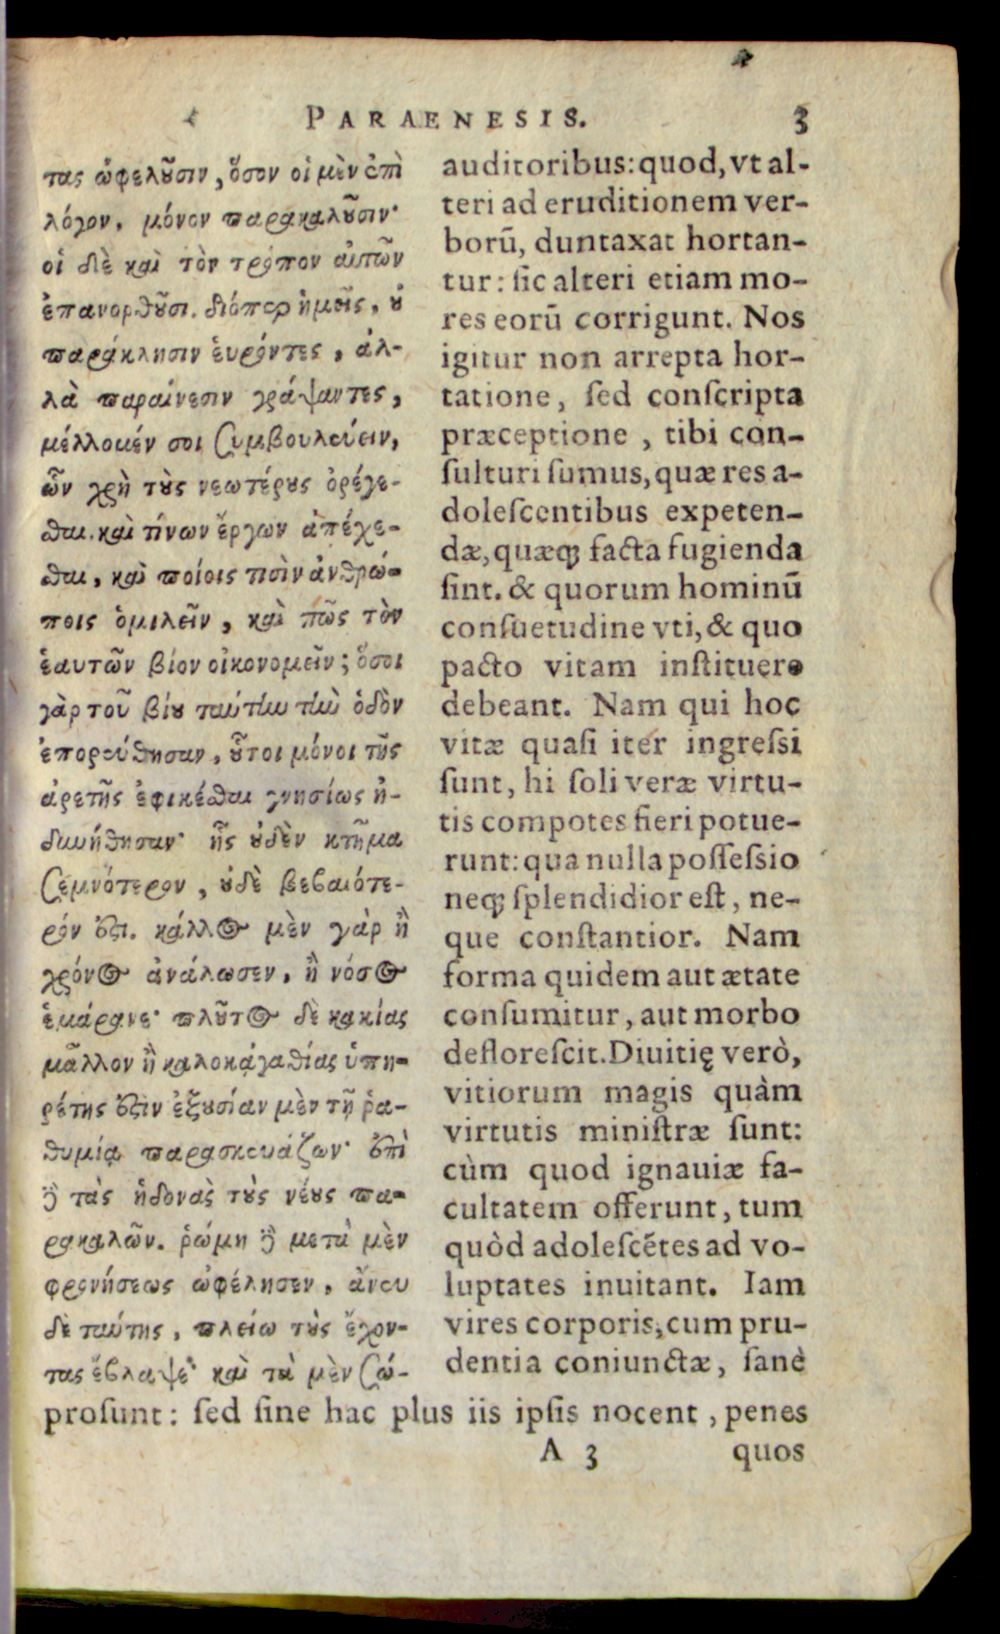 PARAENESIS. 3
τας ὠφελοῦσιν, ὅσον οἱ μὲν ἐπὶ
λόγον, μόνον παρακαλοῦσιν·
οἱ δὲ καὶ τὸν τρόπον αὐτῶν
ἐπανορθοῦσι. διόπερ ἡμεῖς, οὐ
παράκλησιν εὑρόντες, ἀλ-
λὰ παραίνεσιν γράψαντες,
μέλλομέν σοι συμβουλεύειν,
ὧν χρὴ τοὺς νεωτέρους ὀρέγε-
σθαι. καὶ τίνων ἔργων ἀπέχε-
σθαι, καὶ ποίοις τισὶν ἀνθρώ-
ποις ὁμιλεῖν, καὶ πῶς τὸν
ἑαυτῶν βίον οἰκονομεῖν; ὅσοι
γὰρ τοῦ βίου ταύτην τὴν ὁδὸν
ἐπορεύθησαν, οὗτοι μόνοι τῆς
ἀρετῆς ἐφικέσθαι γνησίως ἠ-
δυνήθησαν· ἧς οὐδὲν κτῆμα
σεμνότερον, οὐδὲ βεβαιότε-
ρόν ἐστι. κάλλος μὲν γὰρ ἢ
χρόνος ἀνάλωσεν, ἢ νόσος
ἐμάρανε· πλοῦτος δὲ κακίας
μᾶλλον ἢ καλοκἀγαθίας ὑπη-
ρέτης ἐστὶν ἐξουσίαν μὲν τῇ ῥα-
θυμίᾳ παρασκευάζων· ἐπὶ
δὲ τὰς ἡδονὰς τοὺς νέους πα-
ρακαλῶν. ῥώμη δὲ μετὰ μὲν
φρονήσεως ὠφέλησεν, ἄνευ
δὲ ταύτης, πλείω τοὺς ἔχον-
τας ἔβλαψε· καὶ τὰ μὲν σώ-
auditoribus: quod, vt al-
teri ad eruditionem ver-
borũ, duntaxat hortan-
tur: ſic alteri etiam mo-
res eorũ corrigunt. Nos
igitur non arrepta hor-
tatione, ſed conſcripta
præceptione, tibi con-
ſulturi ſumus, quæ res a-
doleſcentibus expeten-
dæ, quæq; facta fugienda
ſint. & quorum hominũ
conſuetudine vti, & quo
pacto vitam inſtituere
debeant. Nam qui hoc
vitæ quaſi iter ingreſsi
ſunt, hi ſoli veræ virtu-
tis compotes fieri potue-
runt: qua nulla poſſeſsio
neq; ſplendidior eſt, ne-
que conſtantior. Nam
forma quidem aut ætate
conſumitur, aut morbo
defloreſcit. Diuitię verò,
vitiorum magis quàm
virtutis miniſtræ ſunt:
cùm quod ignauiæ fa-
cultatem offerunt, tum
quòd adoleſcẽtes ad vo-
luptates inuitant. Iam
vires corporis, cum pru-
dentia coniunctæ, ſanè
proſunt: ſed ſine hac plus iis ipſis nocent, penes
A 3 quos